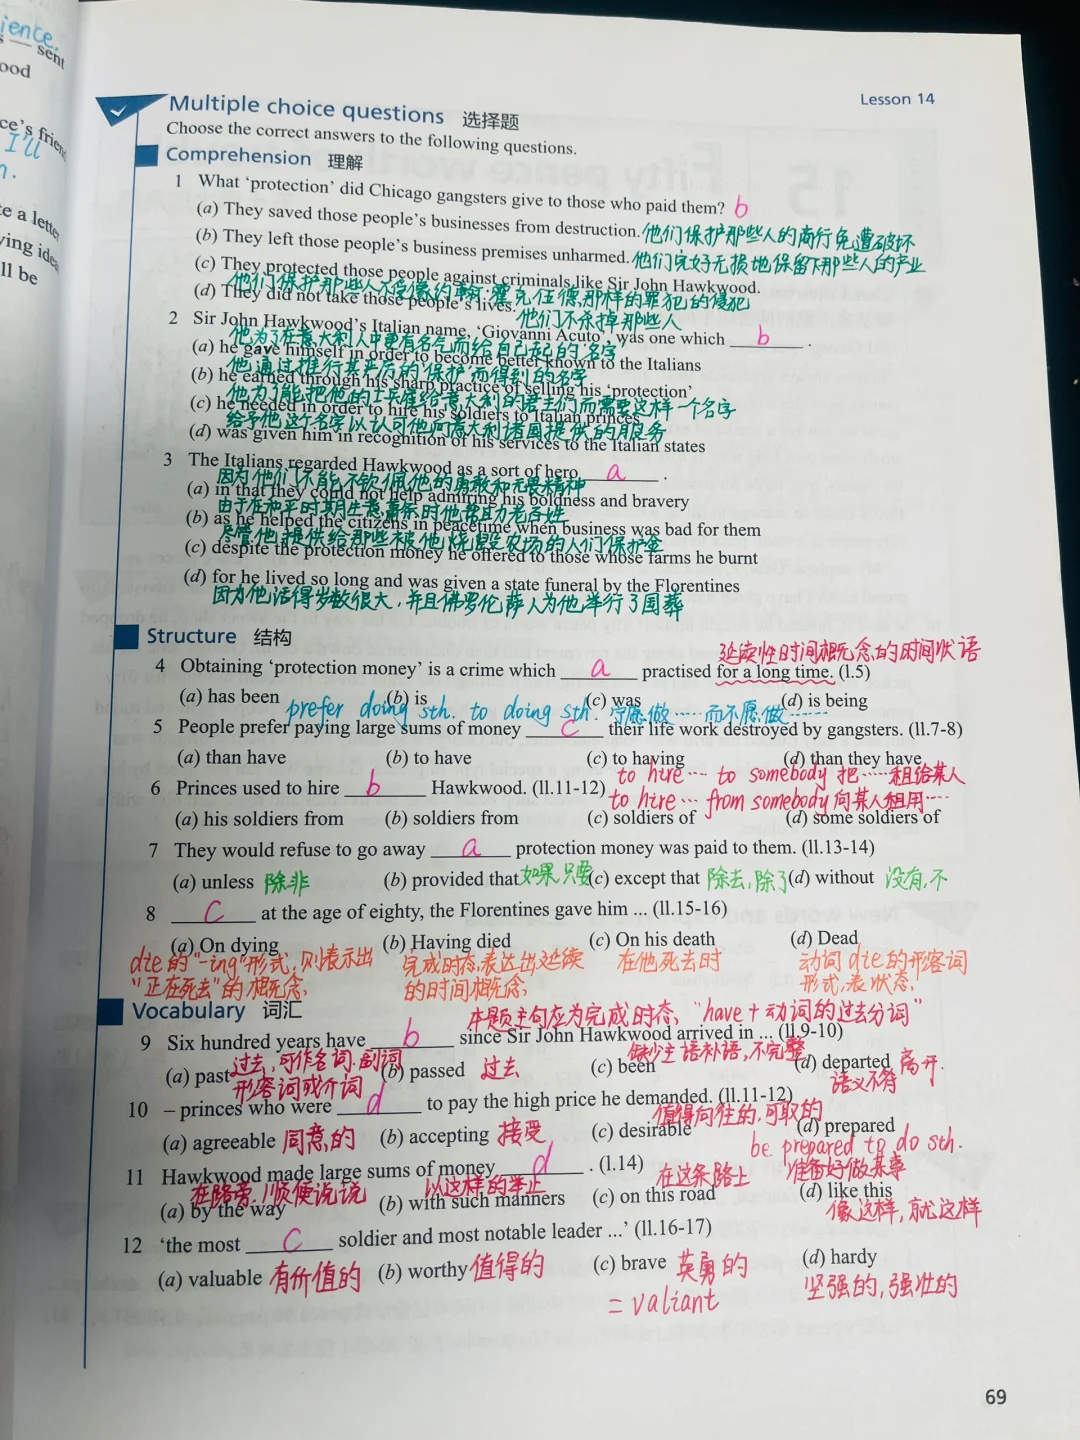 ience.
s — sent
ood
ce's frien
I'll
n.
te a letter
ving idea
ll be
Lesson 14
Multiple choice questions 选择题
Choose the correct answers to the following questions.
Comprehension 理解
1 What ‘protection’ did Chicago gangsters give to those who paid them? b
(a) They saved those people's businesses from destruction. 他们保护那些人的商行免遭破坏
(b) They left those people's business premises unharmed. 他们完好无损地保留下那些人的产业
(c) They protected those people against criminals like Sir John Hawkwood.
他们保护那些人不受像约翰·霍克伍德那样的罪犯的侵犯
(d) They did not take those people's lives. 他们不杀掉那些人
2 Sir John Hawkwood's Italian name, ‘Giovanni Acuto’, was one which b .
他为了在意大利人中更有名气而给自己起的名字
(a) he gave himself in order to become better known to the Italians
他通过推行其严厉的“保护”而得到的名字
(b) he earned through his sharp practice of selling his ‘protection’
他为了能把他的士兵雇给意大利的君主们而需要这样一个名字
(c) he needed in order to hire his soldiers to Italian princes
给予他这个名字以认可他向意大利诸国提供的服务
(d) was given him in recognition of his services to the Italian states
3 The Italians regarded Hawkwood as a sort of hero a .
因为他们不能不钦佩他的勇敢和无畏精神
(a) in that they could not help admiring his boldness and bravery
由于在和平时期生意萧条时他帮助老百姓
(b) as he helped the citizens in peacetime when business was bad for them
尽管他提供给那些被他烧毁农场的人们保护金
(c) despite the protection money he offered to those whose farms he burnt
(d) for he lived so long and was given a state funeral by the Florentines
因为他活得岁数很大，并且佛罗伦萨人为他举行了国葬
Structure 结构
延续性时间概念的时间状语
4 Obtaining ‘protection money’ is a crime which a practised for a long time. (l.5)
(a) has been (b) is (c) was (d) is being
prefer doing sth. to doing sth. 宁愿做……而不愿做……
5 People prefer paying large sums of money c their life work destroyed by gangsters. (ll.7-8)
(a) than have (b) to have (c) to having (d) than they have
to hire… to somebody 把……租给某人
6 Princes used to hire b Hawkwood. (ll.11-12) to hire… from somebody 向某人租用…
(a) his soldiers from (b) soldiers from (c) soldiers of (d) some soldiers of
7 They would refuse to go away a protection money was paid to them. (ll.13-14)
(a) unless 除非 (b) provided that 如果,只要 (c) except that 除去,除了 (d) without 没有,不
8 c at the age of eighty, the Florentines gave him ... (ll.15-16)
(a) On dying (b) Having died (c) On his death (d) Dead
die的“-ing”形式,则表示出 完成时态,表达出延续 在他死去时 动词die的形容词
“正在死去”的概念, 的时间概念, 形式,表状态,
Vocabulary 词汇
本题主句应为完成时态,“have+动词的过去分词”
9 Six hundred years have b since Sir John Hawkwood arrived in ... (ll.9-10)
过去,可作名词.副词 缺少主语补语,不完整
(a) past (b) passed 过去 (c) been (d) departed 离开.
形容词或介词 语义不符
10 – princes who were d to pay the high price he demanded. (ll.11-12)
值得向往的,可取的
(a) agreeable 同意的 (b) accepting 接受 (c) desirable (d) prepared
be prepared to do sth.
11 Hawkwood made large sums of money d . (l.14) 准备好做某事
在路旁,顺便说说 以这样的举止 在这条路上
(a) by the way (b) with such manners (c) on this road (d) like this
像这样,就这样
12 ‘the most c soldier and most notable leader ...’ (ll.16-17)
(a) valuable 有价值的 (b) worthy 值得的 (c) brave 英勇的 (d) hardy
=valiant 坚强的,强壮的
69